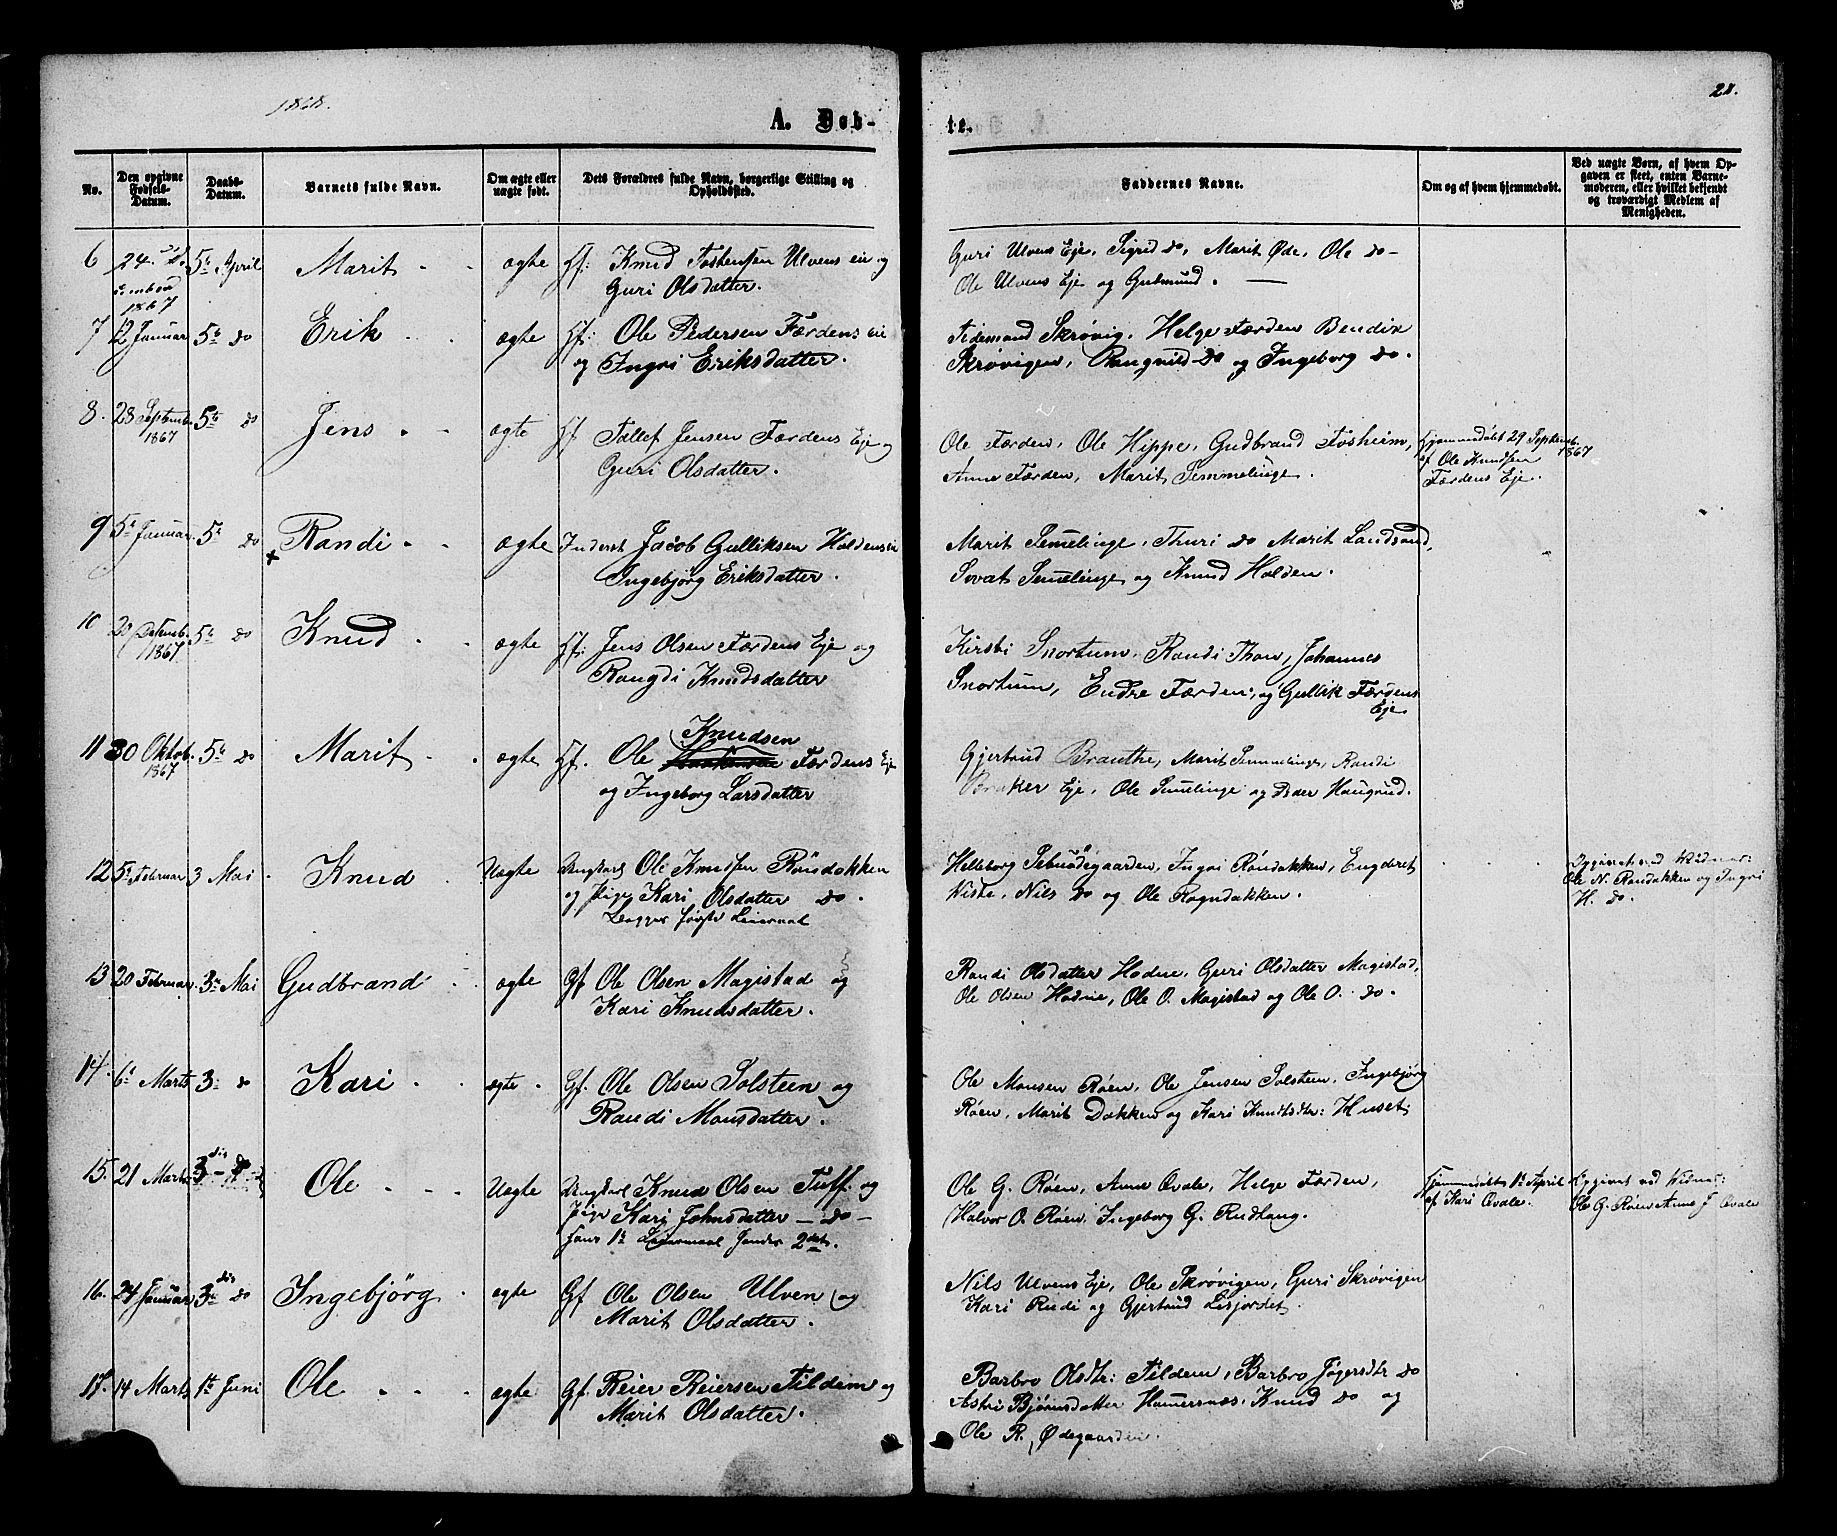 1868.
28.
A. Døb-
te.
No.
Den opgivne Fødsels-Datum.
Daabs-Datum.
Barnets fulde Navn.
Om ægte eller uægte født.
Dets Forældres fulde Navn, borgerlige Stilling og Opholdssted.
Faddernes Navne.
Om og af hvem hjemmedøbt.
Ved uægte Børn, af hvem Opgaven er skeet, enten Barnemoderen, eller hvilket bekjendt og troværdigt Medlem af Menigheden.
6 24 1867 5te April Marit ægte Hf: Knud Tostensen Ulvens eie og
Guri Olsdatter.
Guri Ulvens Eje, Sigrid do, Marit Øde, Ole do -
Ole Ulvens Eje og Gutmund.
7 12 Januar 5te do Erik ægte Hf: Ole Pedersen Færdens eie
og Ingri Eriksdatter.
Tidemand Skrøvig, Helge Færden Bendix
Skrøvigen, Rangnild do og Ingeborg do.
8. 28 Septemb. 1867 5te do Jens ægte Hf Tollef Jensen Færdens Eje og
Guri Olsdatter.
Ole Færden, Ole Hippe, Gudbrand Tosheim,
Anne Færden, Marit Semmelinge.
Hjemmedøbt 29 Septemb. 1867
af Ole Knudsen
Færdens Eje.
9 5te Januar 5te do Randi ægte Inderst Jacob Gulliksen Holdenseie
Ingebjørg Eriksdatter.
Marit Semelinge, Thuri do Marit Landsand,
Sevat Semelinge og Knud Holden.
10 20 1867 5te do Knud ægte Hf: Jens Olsen Færdens Eje og
Rangdi Knudsdatter
Kirsti Snortum, Randi Thon, Johannes
Snortum, Endre Færden, og Gullik Færdens
Eje
11 30 Oktob. 1867 5te do Marit ægte Hf. Ole Knudsen Færdens Eje
og Ingeborg Larsdatter
Gjertrud Brauthe, Marit Semmelinge, Randi
Braker Eje, Ole Semelinge og Peder Haugrud.
12 5te Februar 3 Mai Knud Uægte Ungkarl Ole Knudsen Røndokken
og Pige Kari Olsdatter do.
Begges første Leiermaal
Helleborg Ingri Røndokken, Engebret
Kiste, Nils do og Ole Rogndokken.
Opgivet ved Vidner:
Ole N. Rondokken og Ingri
H. do.
13 20 Februar 3die Mai Gudbrand ægte Gf Ole Olsen Magistad og
Kari Knudsdatter.
Randi Olsdatter Hodne, Guri Olsdatter Magistad,
Ole Olsen Hodne, Ole O. Magistad og Ole O. do.
14. 6te Marts 3 do Kari ægte Gf. Ole Olsen Solsteen og
Randi Monsdatter.
Ole Monsen Røen, Ole Jensen Solsteen, Ingebjørg
Røen, Marit Dokken og Kari Knudsdtr: Huset
15. 21 Marts 3die do Ole Uægte Ungkarl Knud Olsen Tuff. og
Pige Kari Johnsdatter - do -
Hans 1te Leiermaal hendes 2det.
Ole G. Røen, Anne Qvale, Helge Færden,
Halvor O. Røen, Ingeborg G. Rudhaug.
Hjemmedøbt 1te April
af Kari Qvale.
Opgivet ved Vidner:
Ole G. Røen Anne J Qvale
16. 24 Januar 3die do Ingebjørg ægte Gf Ole Olsen Ulven og
Marit Olsdatter.
Nils Ulvens Eje, Ole Skrøvigen, Guri Skrøvigen
Kari Rudi og Gjertrud Lisjordet.
17. 14 Marts 1te Juni Ole ægte Gf Reier Reiersen Tildem og
Marit Olsdatter.
Barbro Olsdtr: Tildem, Barbro do
Astri Bjørnsdatter Hamersnæs, Knud do og
Ole R. Ødegaarden.